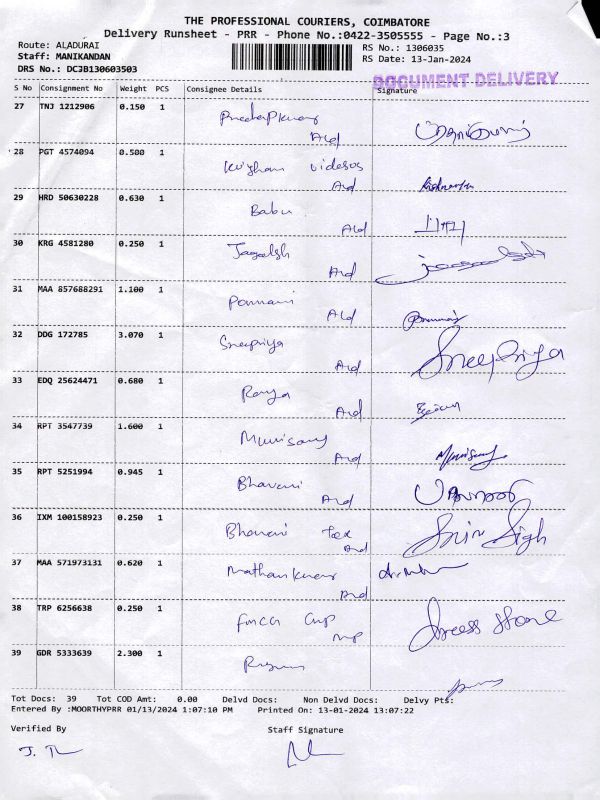 THE PROFESSIONAL COURIERS, COIMBATORE
Delivery Runsheet - PRR - Phone No.:0422-3505555 - Page No.:3
Route: ALADURAI
Staff: MANIKANDAN
DRS No.: DCJB130603503
RS No.: 1306035
RS Date: 13-Jan-2024
DOCUMENT DELIVERY
S No Consignment No Weight PCS Consignee Details Signature
27 TNJ 1212906 0.150 1
Ald
28 PGT 4574094 0.500 1
Ald
29 HRD 50630228 0.630 1 Babu
Ald
30 KRG 4581280 0.250 1 Jagadish
Ald
31 MAA 857688291 1.100 1 Ponmani
Ald
32 DDG 172785 3.070 1 Sreepriya Sreepriya
Ald
33 EDQ 25624471 0.680 1 Ramya
Ald
34 RPT 3547739 1.600 1 Munisamy Munisamy
Ald
35 RPT 5251994 0.945 1 Bhavani
Ald
36 IXM 100158923 0.250 1 Bhavani Tex
Ald
37 MAA 571973131 0.620 1
Ald
38 TRP 6256638 0.250 1
39 GDR 5333639 2.300 1
Tot Docs: 39 Tot COD Amt: 0.00 Delvd Docs: Non Delvd Docs: Delvy Pts:
Entered By :MOORTHYPRR 01/13/2024 1:07:10 PM Printed On: 13-01-2024 13:07:22
Verified By Staff Signature